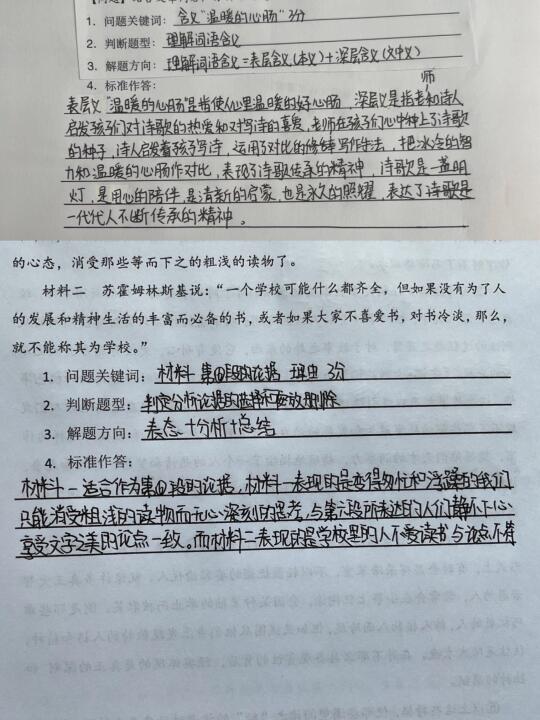 1. 问题关键词：含义"温暖的心肠"3分
2. 判断题型：理解词语含义
3. 解题方向：理解词语含义=表层含义(本义)+深层含义(文中义)
4. 标准作答：
师
表层义"温暖的心肠"是指使人心里温暖的好心肠，深层义是指老和诗人
启发孩子们对诗歌的热爱和对写诗的喜爱，老师在孩子们心中种上了诗歌
的种子，诗人启发着孩子写诗，运用了对比的修辞写作手法，把冰冷的智
力和温暖的心肠作对比，表现了诗歌传承的精神，诗歌是一盏明
灯，是用心的陪伴，是清新的启蒙，也是永久的照耀，表达了诗歌是
一代代人不断传承的精神。
的心态，消受那些等而下之的粗浅的读物了。
材料二 苏霍姆林斯基说："一个学校可能什么都齐全，但如果没有为了人
的发展和精神生活的丰富而必备的书，或者如果大家不喜爱书，对书冷淡，那么，
就不能称其为学校。"
1. 问题关键词：材料 第段的论据 理由 3分
2. 判断题型：判定分析论据的选择和应放删除
3. 解题方向：表态+分析+总结
4. 标准作答：
材料一适合作为第段的论据，材料一表现的是变得匆忙和浮躁的我们
只能消受粗浅的读物而无心深刻的思考，与第六段所表达的人们静不下心
享受文字之美的论点一致。而材料二表现的是学校里的人不爱读书与论点不符